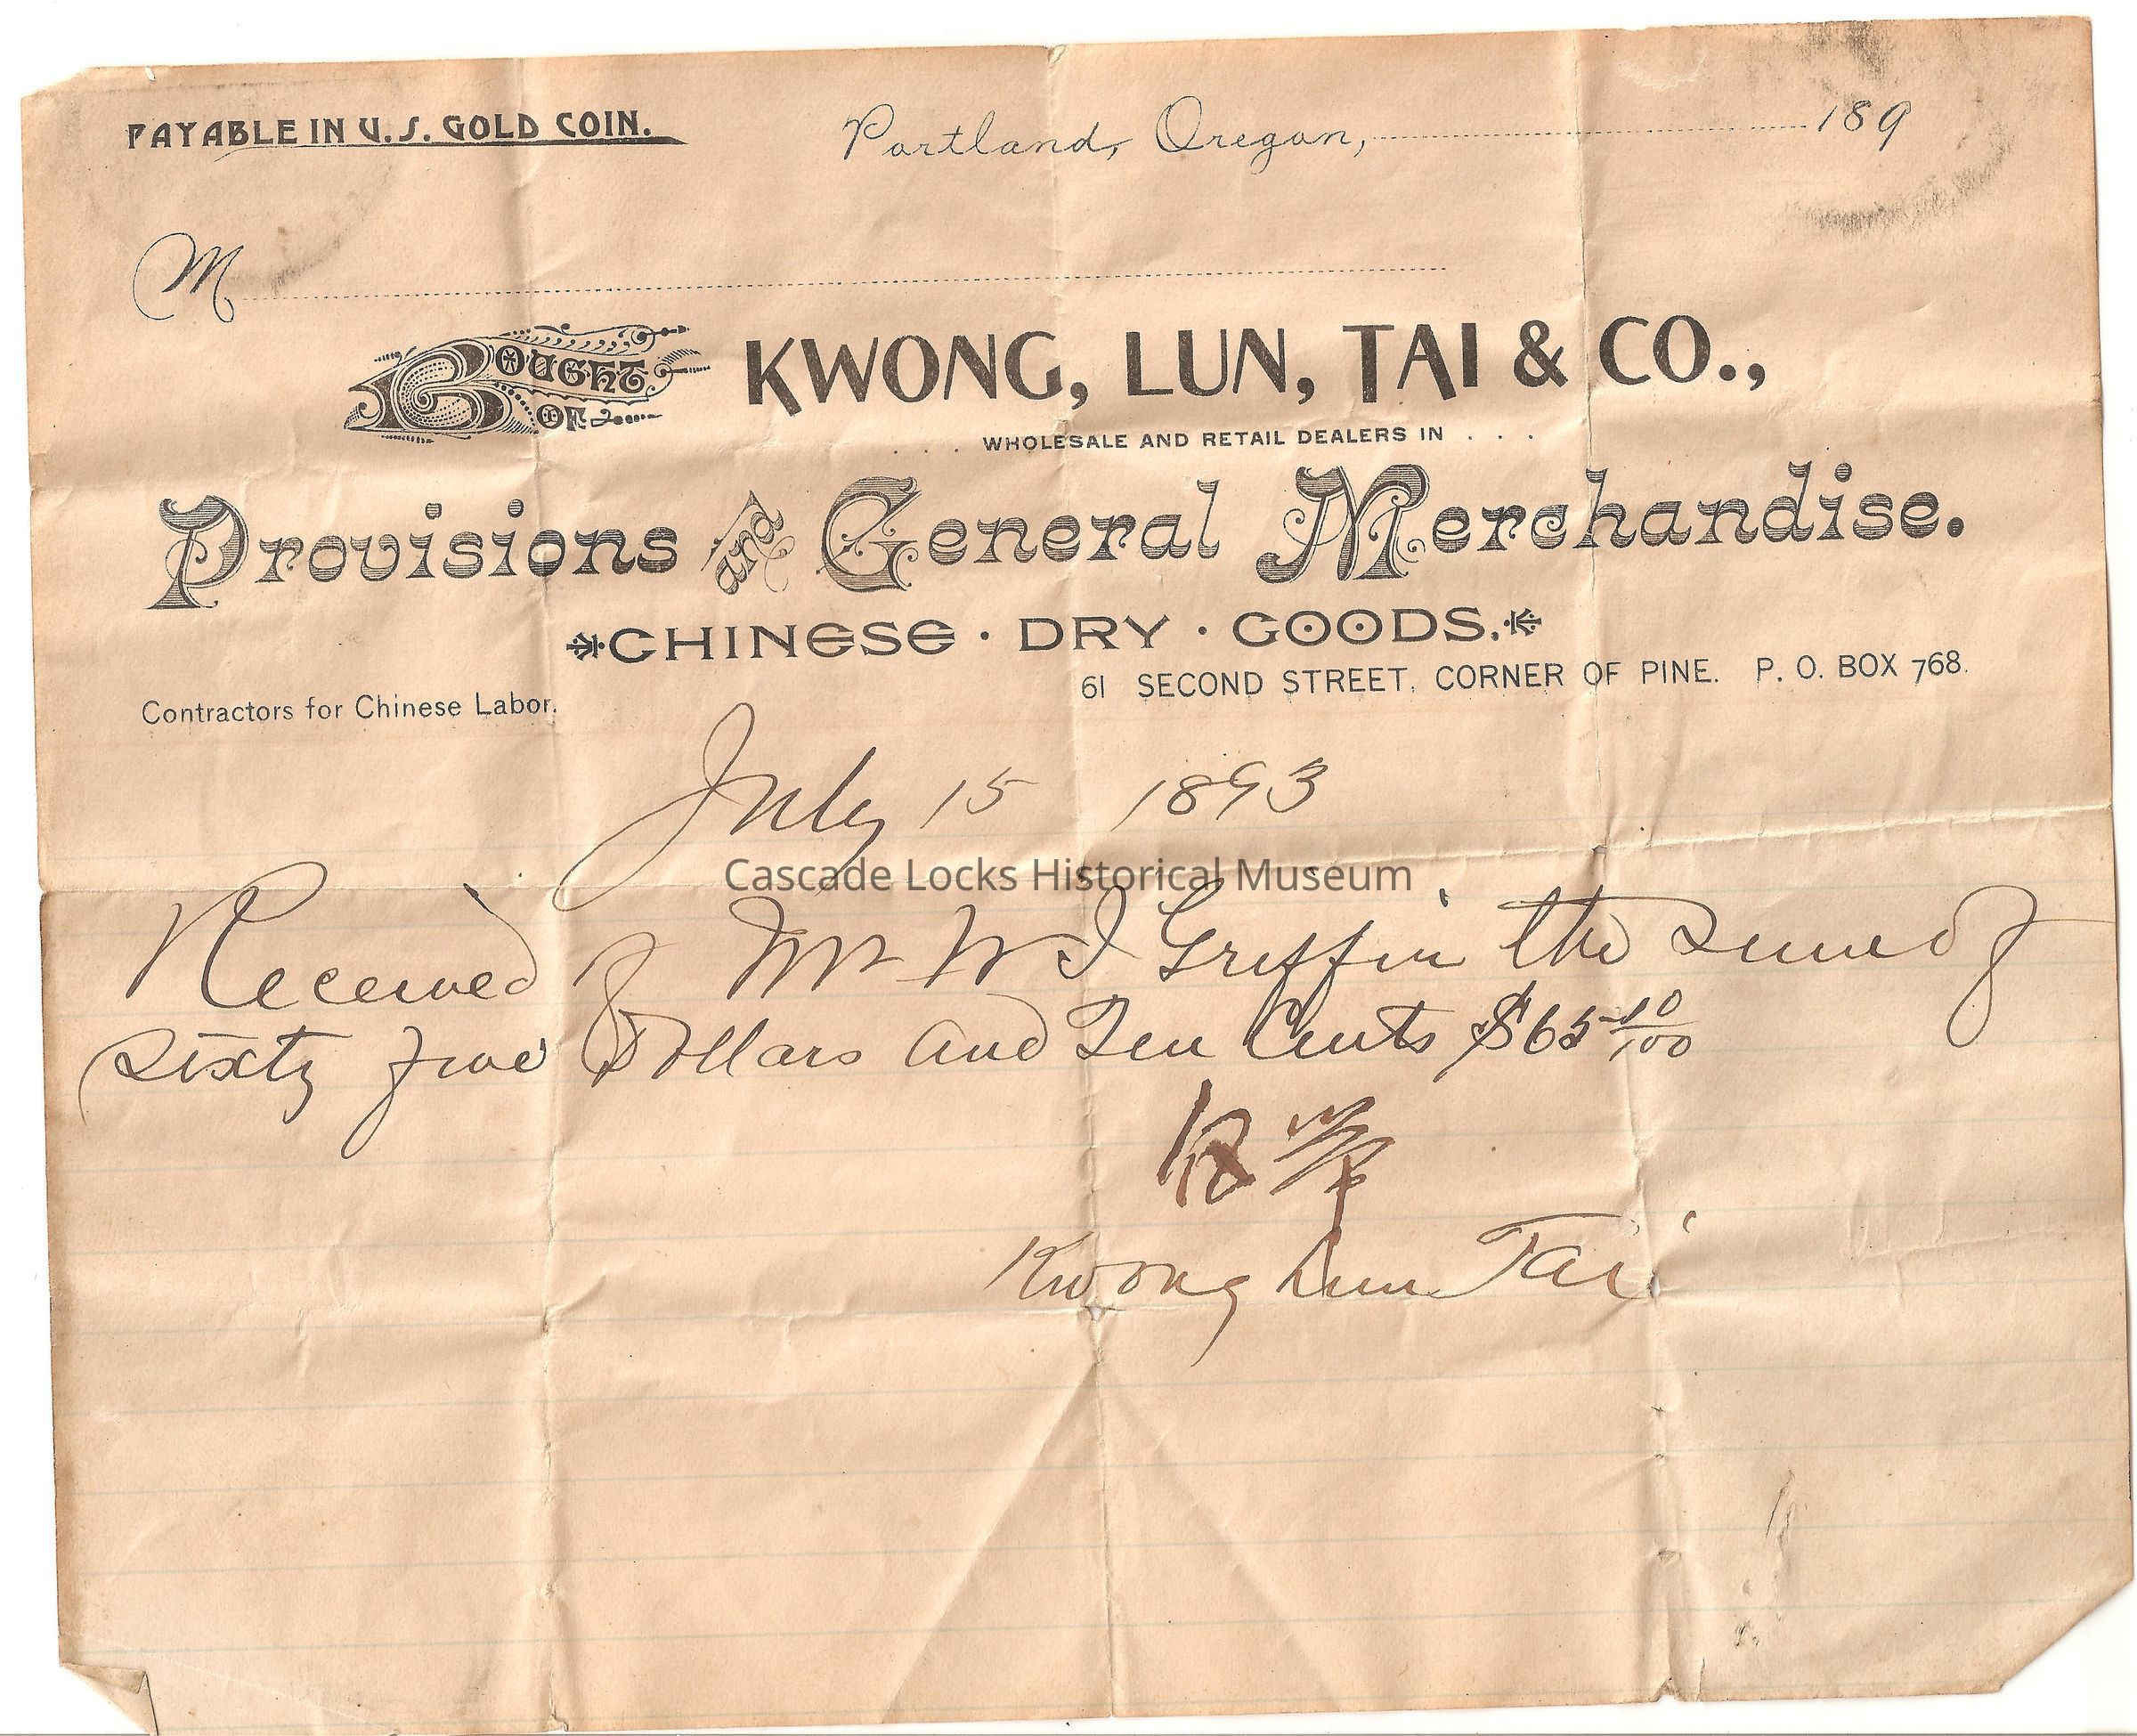 PAYABLE IN U.S. GOLD COIN.
Portland, Oregon, 189
M
BOUGHT OF KWONG, LUN, TAI & CO.,
. . . WHOLESALE AND RETAIL DEALERS IN . . .
Provisions and General Merchandise.
CHINESE · DRY · GOODS.
61 SECOND STREET, CORNER OF PINE. P. O. BOX 768.
Contractors for Chinese Labor.
July 15 1893
Cascade Locks Historical Museum
Received of Mr W J Griffin the sum of
sixty five Dollars and Ten Cents $65 10/100
Kwong Lun Tai